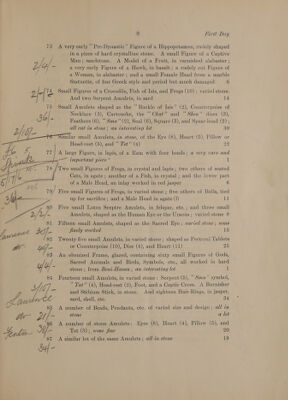 8 First Day
73 A very early "Pre-Dynastic" Figure of a Hippopotamus, rudely shaped
in a piece of hard crystalline stone. A small Figure of a Captive
Man; soudstone. A Model of a Fruit, in varnished alabaster;
a very early Figure of a Hawk, in basalt; a rudely cut Figure of
a Woman, in alabaster; and a small Female Head from a marble
Statuette, of fine Greek style and period but much damaged 6
2/4/-
74 Small Figures of a Crocodile, Fish of Isis, and Frogs (10); varied stone.
And two Serpent Amulets, in sard 14
75 Small Amulets shaped as the "Buckle of Isis" (2), Counterpoise of
Necklace (3), Cartouche, the "Utat" and "Shen" discs (3),
Feathers (6), "Sma" (2), Seal (6), Square (3), and Spear-head (2);
all cut in stone; an interesting lot 39
36/-
76 Similar small Amulets, in stone, of the Eye (8), Heart (5), Pillow or
Head-rest (5), and "Tet" (4) 22
77 A large Figure, in lapis, of a Ram with four heads; a very rare and
important piece 1
78 Two small Figures of Frogs, in crystal and lapis; five others of seated
Cats, in agate; another of a Fish, in crystal; and the lower part
of a Male Head, an inlay worked in red jasper 8
79 Five small Figures of Frogs, in varied stone; five others of Bulls, tied
up for sacrifice; and a Male Head in agate 11
80 Five small Lotus Sceptre Amulets, in felspar, etc.; and three small
Amulets, shaped as the Human Eye or the Uraeus; varied stone 8
2/2/-
81 Fifteen small Amulets, shaped as the Sacred Eye; varied stone; some
finely worked 15
30/-
82 Twenty-five small Amulets, in varied stone; shaped as Pectoral Tablets
or Counterpoise (10), Disc (4), and Heart (11) 25
83 An ebonised Frame, glazed, containing sixty small Figures of Gods,
Sacred Animals and Birds, Symbols, etc., all worked in hard
stone; from Beni-Hasan; an interesting lot 1
4/4/-
84 Fourteen small Amulets, in varied stone: Serpent (3), "Sma" symbol,
"Tet" (4), Head-rest (2), Foot, and a Coptic Cross. A Burnisher
and Stibium Stick, in stone. And eighteen Hair-Rings, in jasper,
sard, shell, etc. 34
85 A number of Beads, Pendants, etc. of varied size and design; all in
stone a lot
21/-
86 A number of stone Amulets: Eyes (8), Heart (4), Pillow (5), and
Tet (3); some fine 20
87 A similar lot of the same Amulets; all in stone 19
34/-